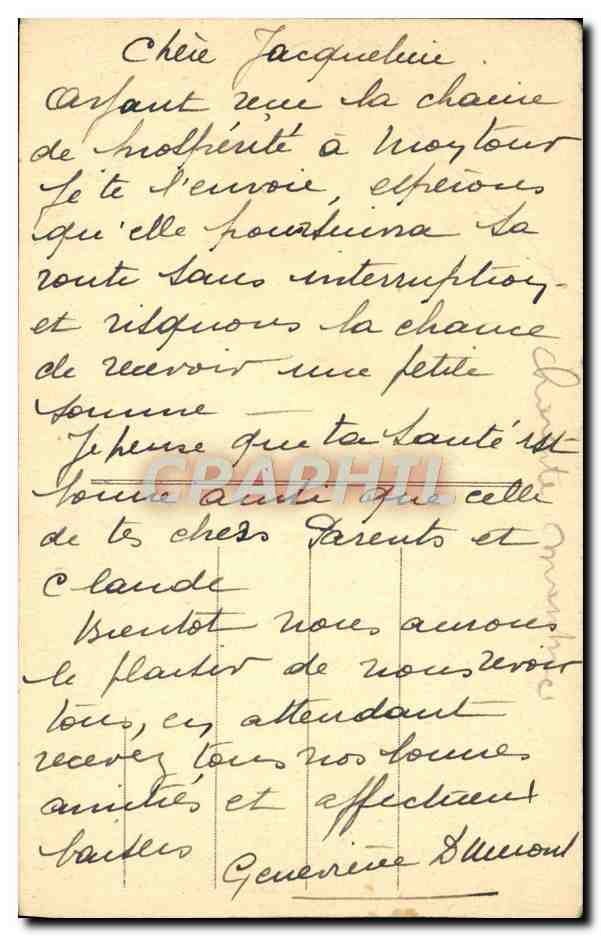 Chère Jacqueline
Ayant reçu la chaine
de prospérité à mon tour
Je te l'envoie, espérons
qu'elle poursuivra sa
route sans interruption
et risquons la chance
de recevoir une petite
somme —
Je pense que ta santé est
bonne ainsi que celle
de tes chers Parents et
Claude
Bientot nous aurons
le plaisir de nous revoir
tous, en attendant
recevez tous nos bonnes
amitiés et affectueux
baisers
Geneviève Dumont
CPAPHIL